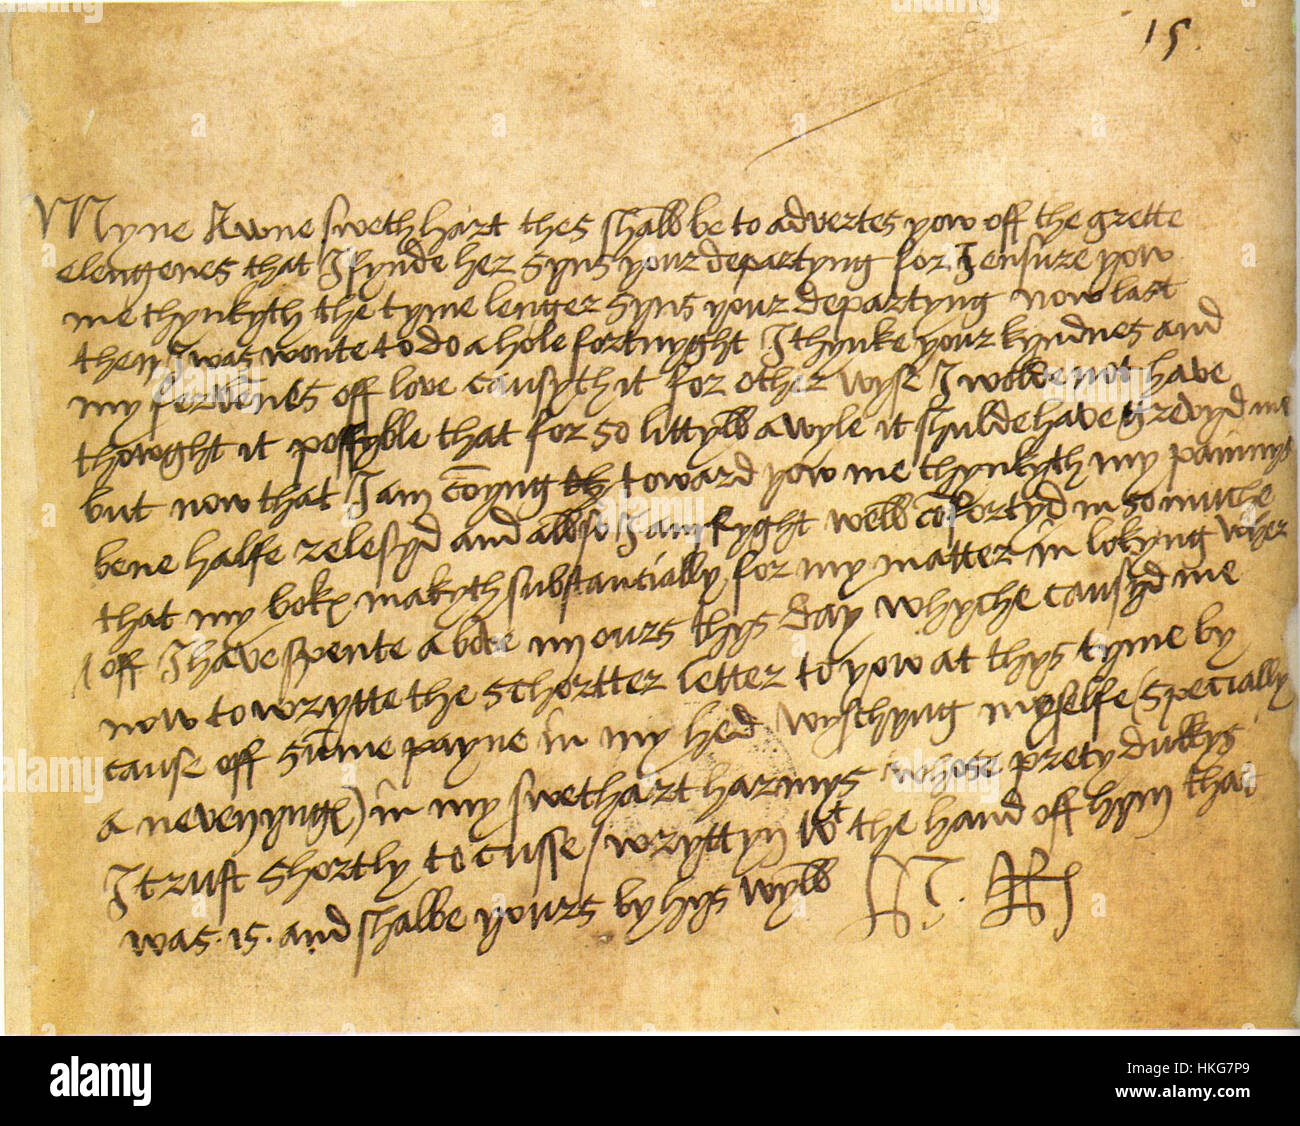 15.
Myne Awne swethhart thes shall be to advertes yow off the grette
elengenes that I fynde her syns your departyng for I ensure yow
me thynkyth the tyme lenger syns your departyng now last
then I was wonte to do a hole fortnyght I thynke your kyndnes and
my fervēnes off love causyth it for other wyse I wolde not have
thowght it possyble that for so littyll a wyle it shulde have grevyd me
but now that I am cōmyng toward yow me thynkyth my painnys
bene halfe relesyd and allso I am ryght well cōfortyd in so muche
that my bok makyth substantially for my matter in lokyng wher
off I have spente above iiij ours thys day whyche causyd me
now to wrytte the schortter letter to yow at thys tyme by
cause off sūme payne in my hed wyschyng myselfe (specially
a nevenyng) in my swethart harmys whose prety dukkys
I trust shortly to cusse / wryttyn wt the hand off hym that
was . is . and shalbe yours by hys wyll H. R
alamy
alamy stock photo
HKG7P9
www.alamy.com